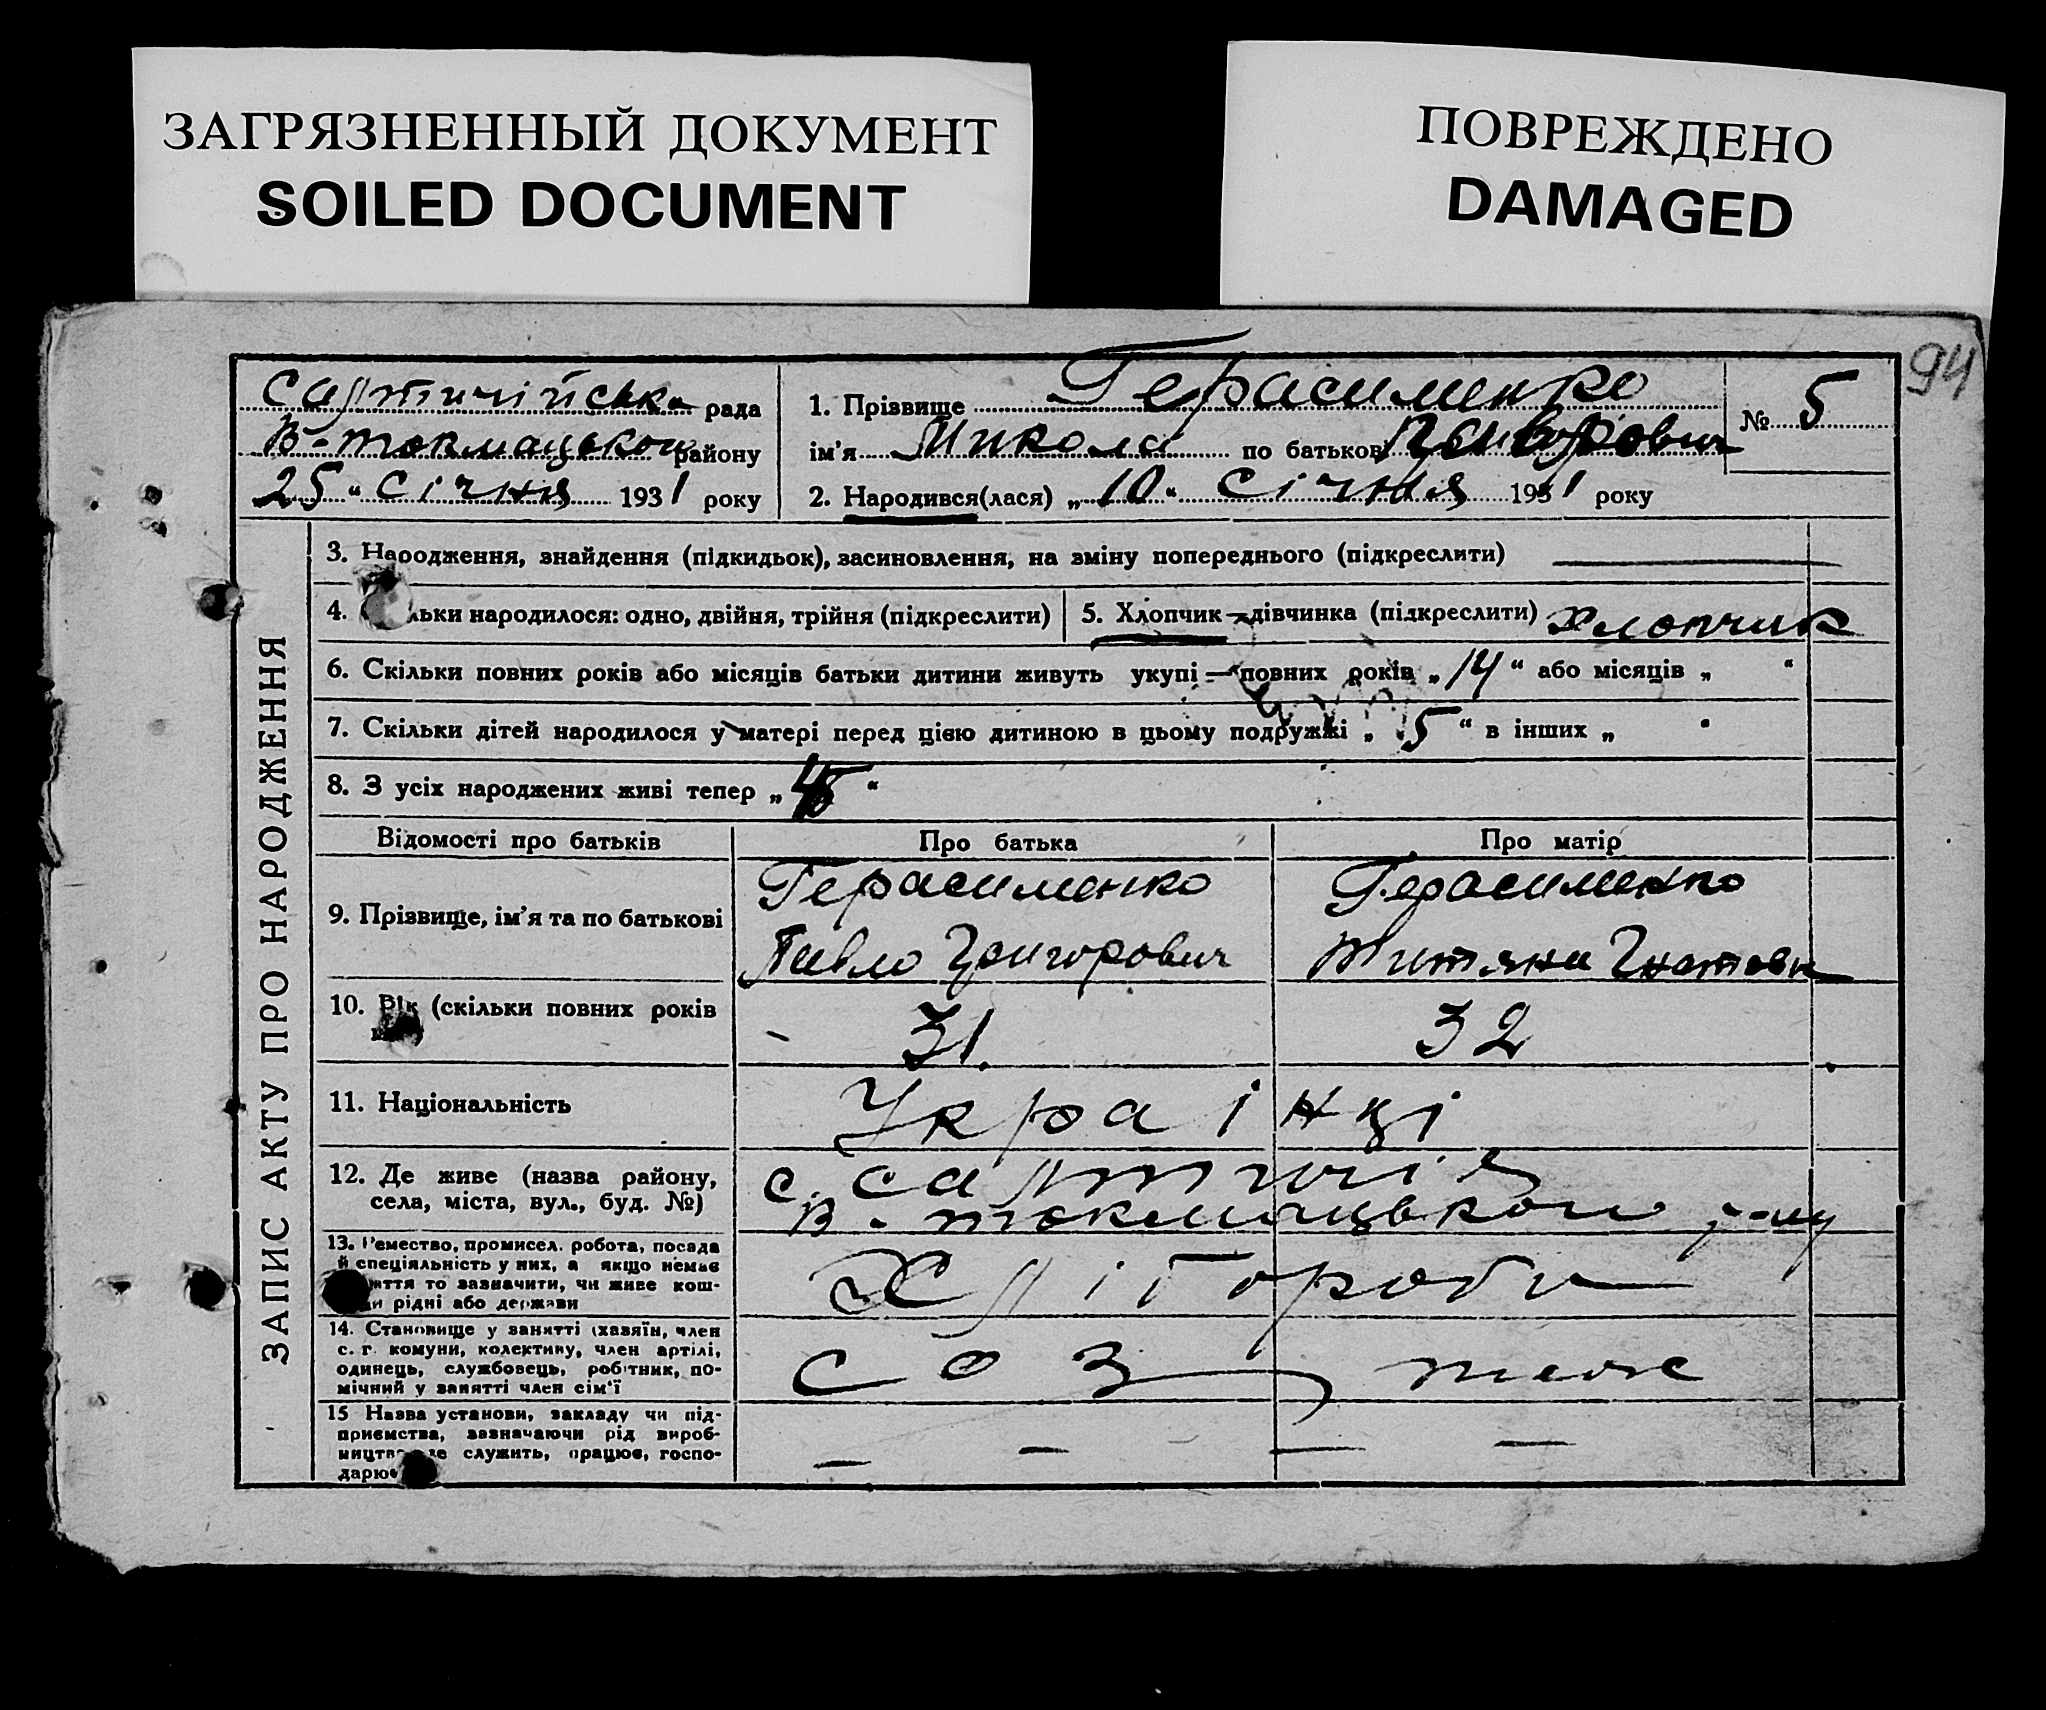 ЗАГРЯЗНЕННЫЙ ДОКУМЕНТ
SOILED DOCUMENT
ПОВРЕЖДЕНО
DAMAGED
94
рада
В-токмацького району
25 " січня 1931 року
1. Прізвище Герасименко
ім'я Микола по батькові
2. Народився(лася) „ 10 " січня 1931 року
№ 5
ЗАПИС АКТУ ПРО НАРОДЖЕННЯ
3. Народження, знайдення (підкидьок), засиновлення, на зміну попереднього (підкреслити)
4. льки народилося: одно, двійня, трійня (підкреслити)
5. Хлопчик — дівчинка (підкреслити) Хлопчик
6. Скільки повних років або місяців батьки дитини живуть укупі — повних років „ 14 " або місяців „ "
7. Скільки дітей народилося у матері перед цією дитиною в цьому подружжі „ 5 " в інших „ "
8. З усіх народжених живі тепер „ "
Відомості про батьків
Про батька
Про матір
9. Прізвище, ім'я та по батькові
Герасименко
Павло Григорович
Герасименко
Титяна Гнатовн
10. Вік (скільки повних років
31.
32
11. Національність
Українці
12. Де живе (назва району,
села, міста, вул., буд. №)
с.
В-токмацького р-ну
13. Ремество, промисел, робота, посада
й спеціяльність у них, а якщо немає
яття то зазначити, чи живе кош-
ми рідні або держави
Хліборобы
14. Становище у занятті (хазяїн, член
с. г. комуни, колективу, член артілі,
одинець, службовець, робітник, по-
мічний у занятті член сім'ї
СОЗ теж
15 Назва установи, закладу чи під-
приємства, зазначаючи рід вироб-
ництва де служить, працює, госпо-
дарює
— — — —